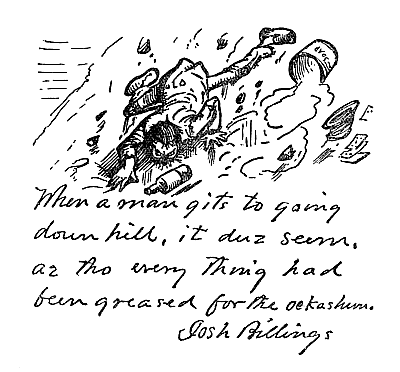 When a man gits to going
down hill, it duz seem,
az tho every thing had
been greased for the ockashun.
Josh Billings